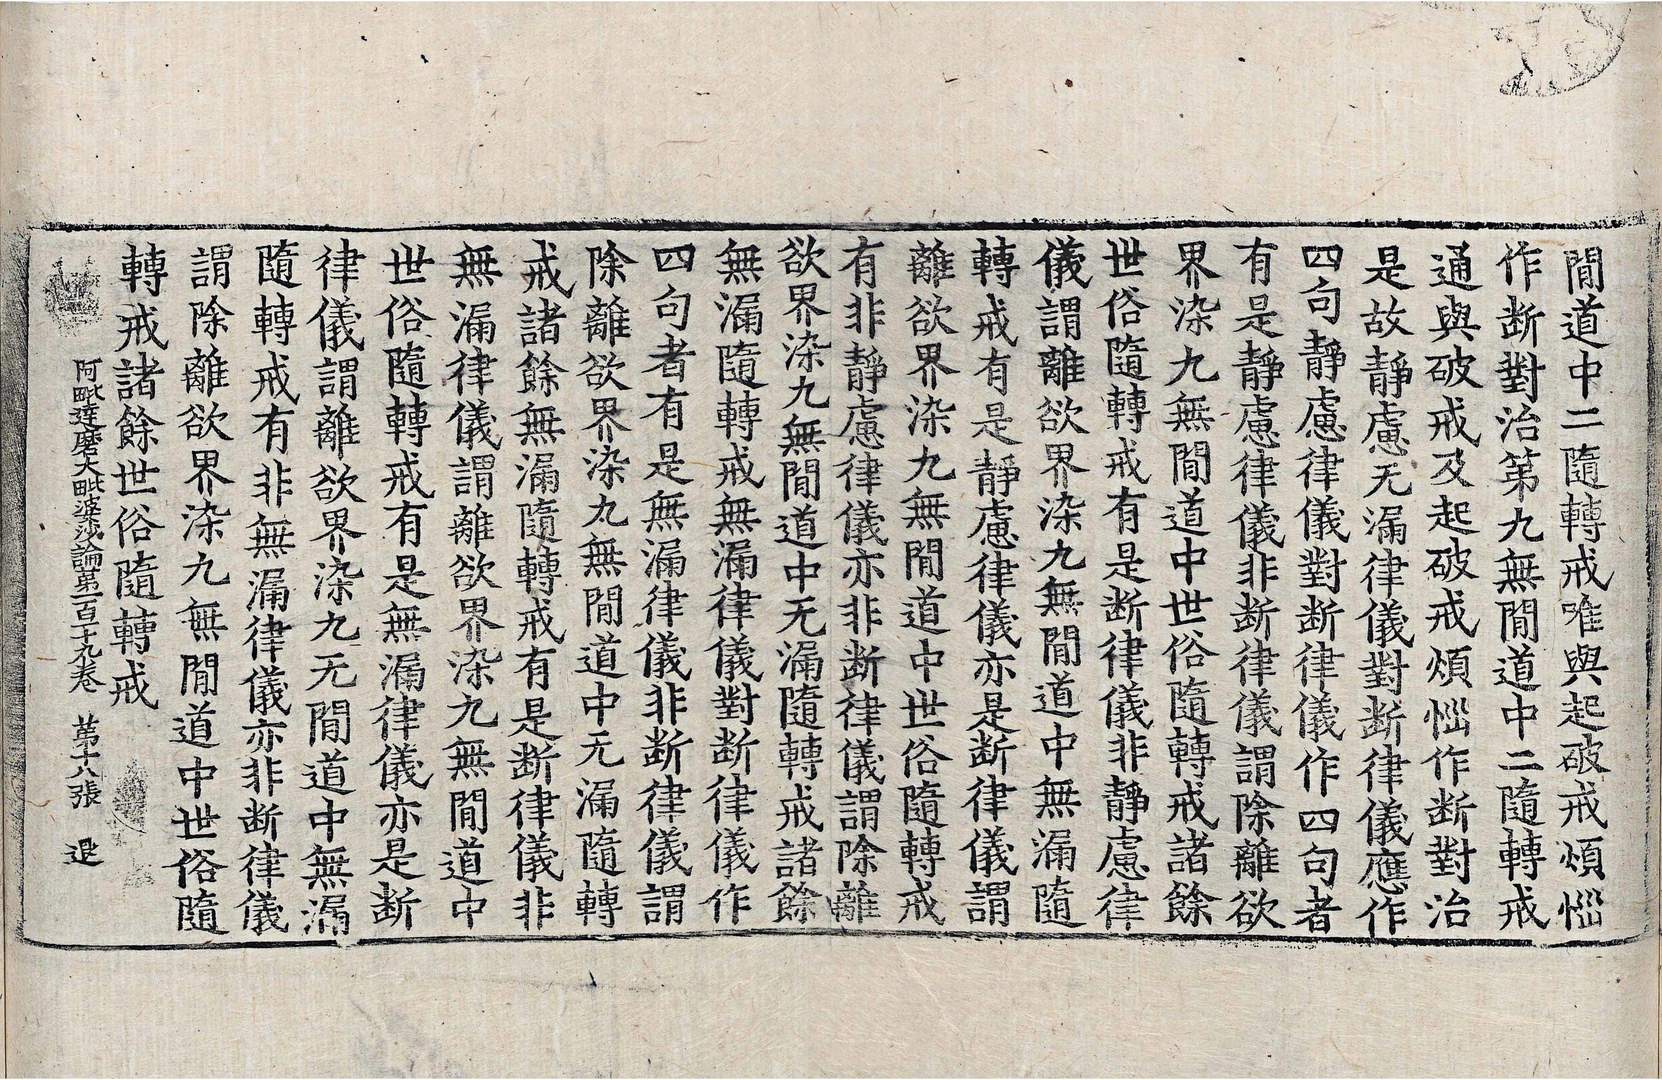 閒道中二隨轉戒唯與起破戒煩惱
作断對治第九無閒道中二隨轉戒
通與破戒及起破戒煩惱作断對治
是故靜慮无漏律儀對断律儀應作
四句靜慮律儀對断律儀作四句者
有是靜慮律儀非断律儀謂除離欲
界染九無閒道中世俗隨轉戒諸餘
世俗隨轉戒有是断律儀非靜慮律
儀謂離欲界染九無閒道中無漏隨
轉戒有是靜慮律儀亦是断律儀謂
離欲界染九無閒道中世俗隨轉戒
有非靜慮律儀亦非断律儀謂除離
欲界染九無閒道中无漏隨轉戒諸餘
無漏隨轉戒無漏律儀對断律儀作
四句者有是無漏律儀非断律儀謂
除離欲界染九無閒道中无漏隨轉
戒諸餘無漏隨轉戒有是断律儀非
無漏律儀謂離欲界染九無閒道中
世俗隨轉戒有是無漏律儀亦是断
律儀謂離欲界染九无閒道中無漏
隨轉戒有非無漏律儀亦非断律儀
謂除離欲界染九無閒道中世俗隨
轉戒諸餘世俗隨轉戒
阿毗達磨大毗婆沙論第一百十九卷 苐十八張 退